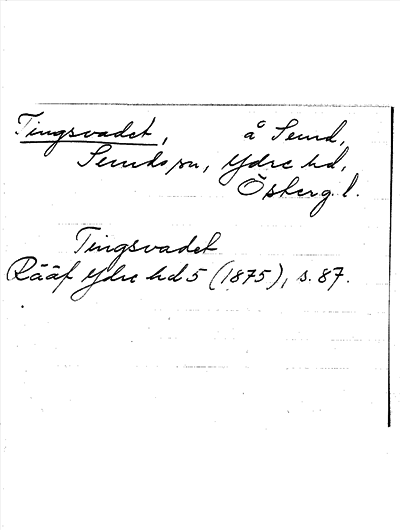 Tingsvadet, å Sund,
Sunds sn, Ydre hd,
Österg. l.
Tingsvadet
Rääf Ydre hd 5 (1875), s. 87.